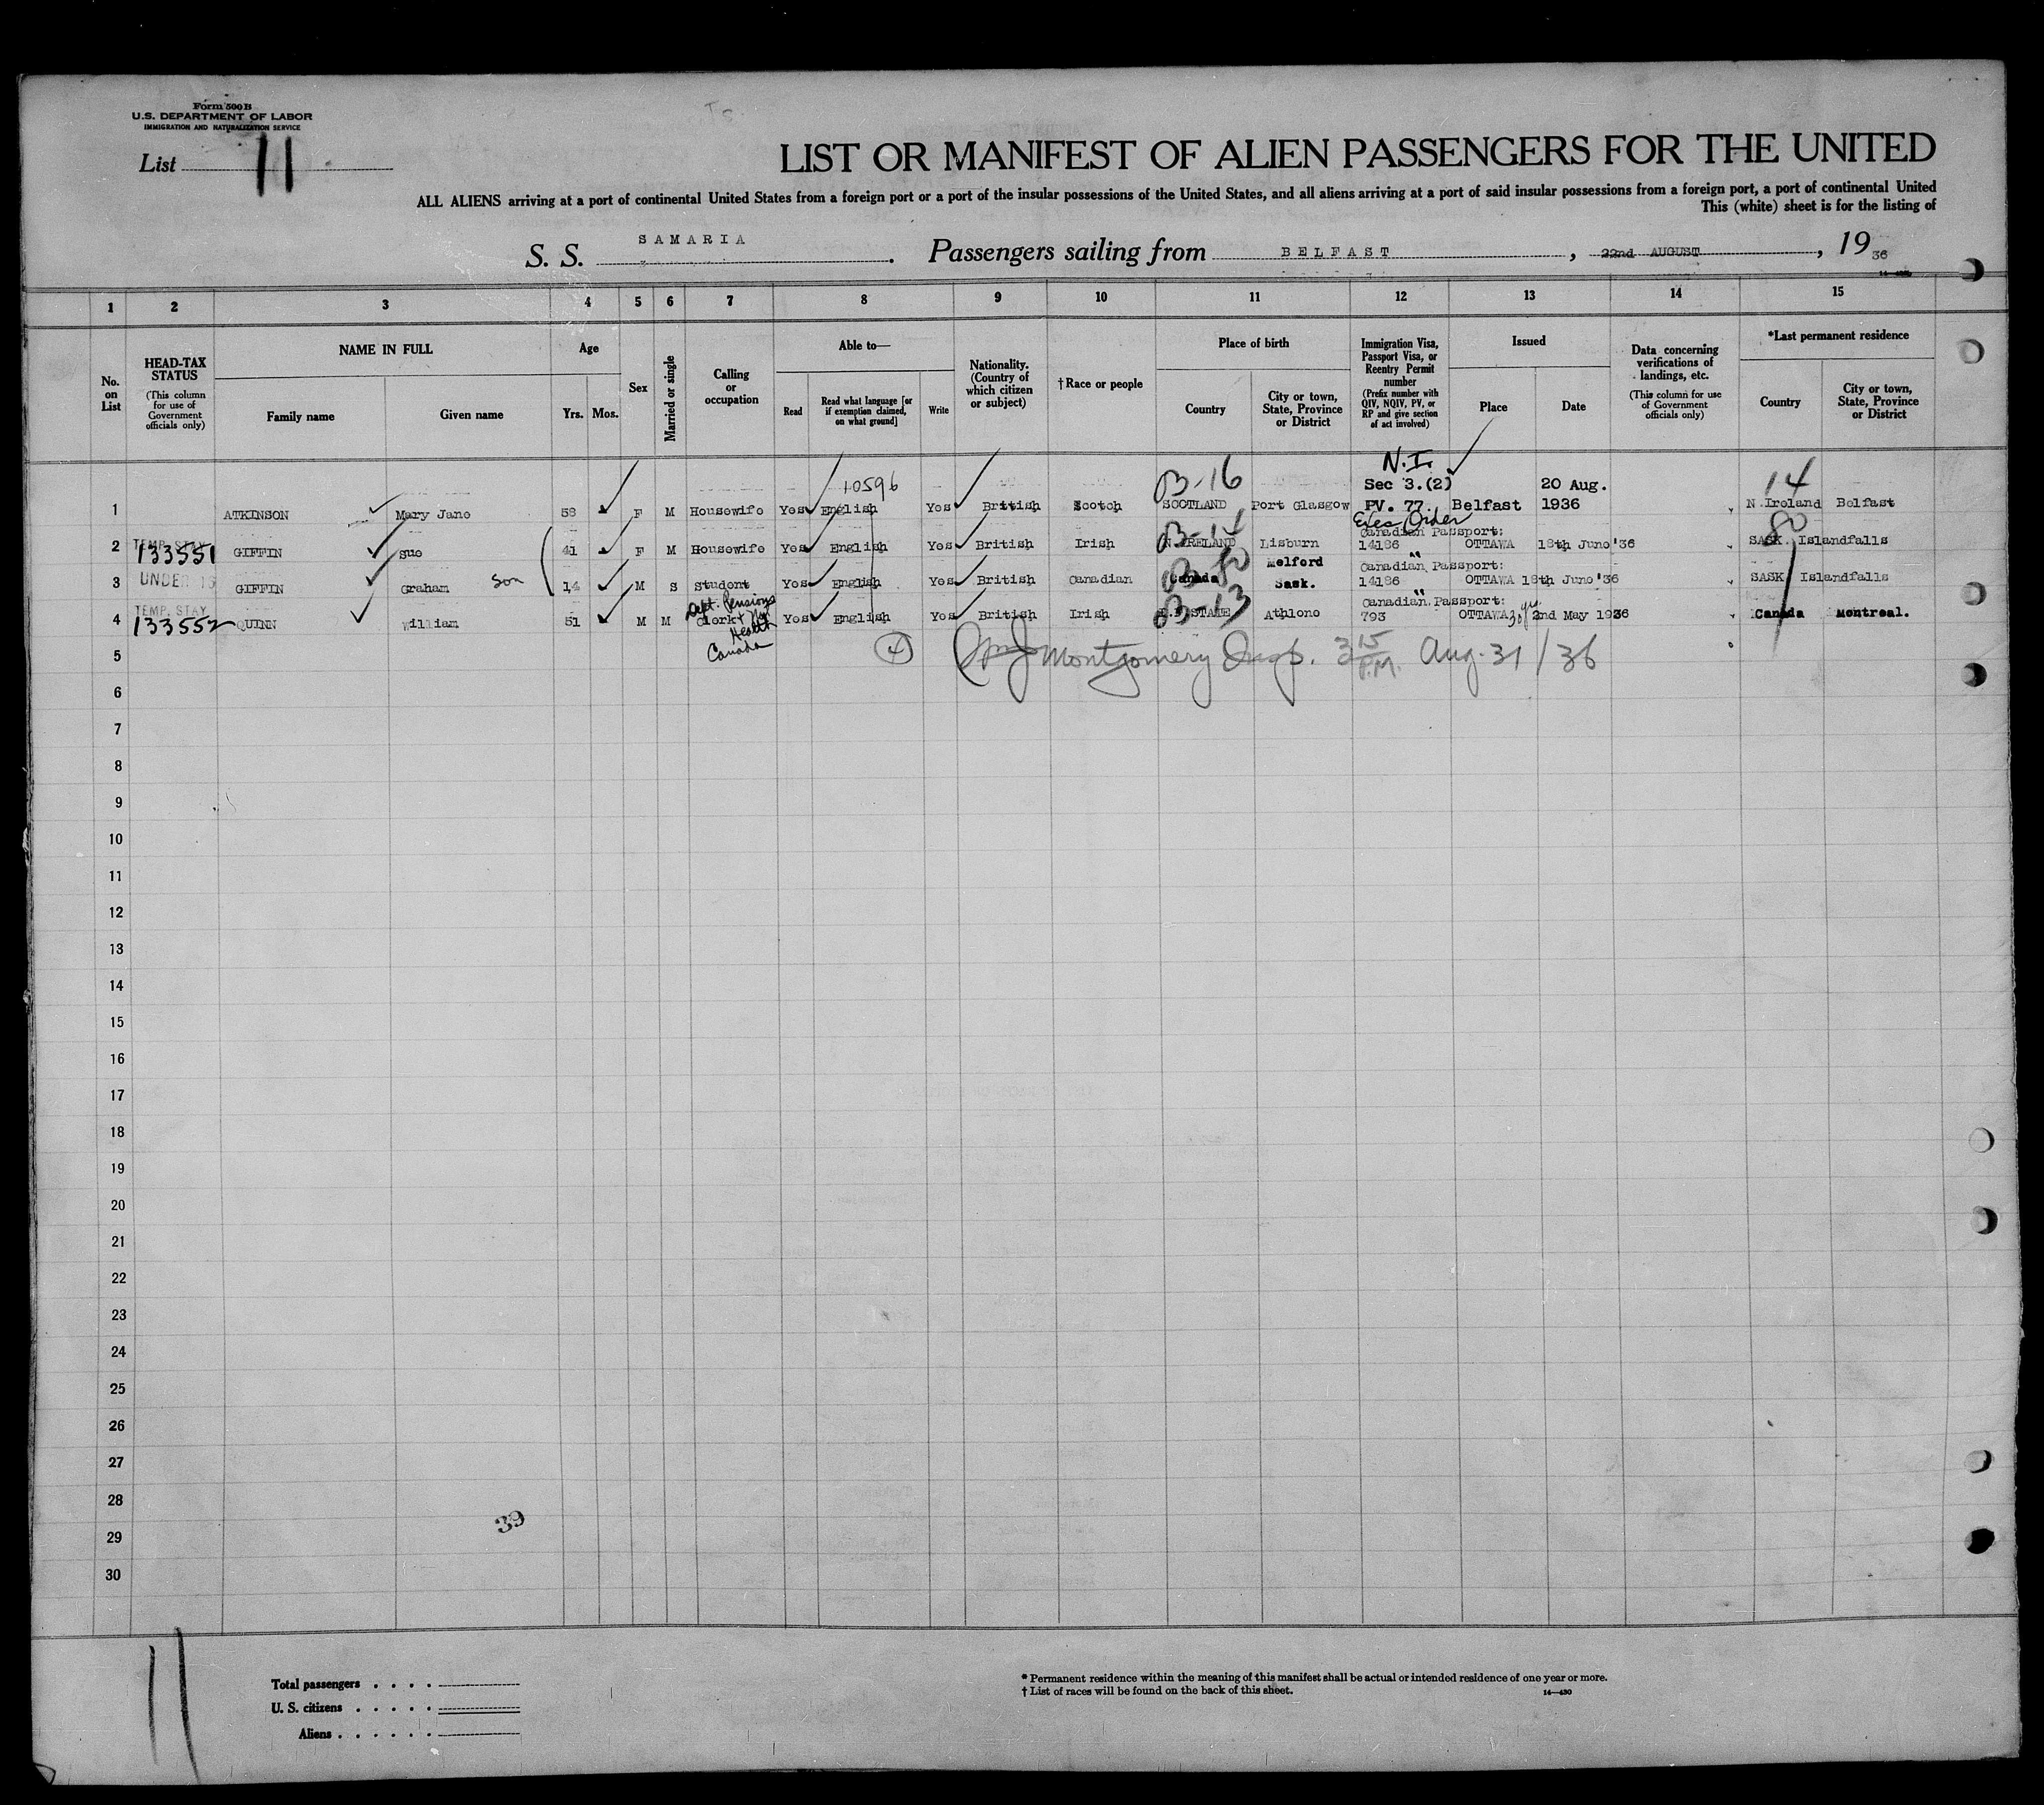 Form 500 B
U.S. DEPARTMENT OF LABOR
IMMIGRATION AND NATURALIZATION SERVICE
List 11
LIST OR MANIFEST OF ALIEN PASSENGERS FOR THE UNITED
ALL ALIENS arriving at a port of continental United States from a foreign port or a port of the insular possessions of the United States, and all aliens arriving at a port of said insular possessions from a foreign port, a port of continental United
This (white) sheet is for the listing of
S. S. SAMARIA. Passengers sailing from BELFAST, 22nd AUGUST, 1936
1 2 3 4 5 6 7 8 9 10 11 12 13 14 15
No. on List
HEAD-TAX STATUS
(This column for use of Government officials only)
NAME IN FULL
Family name
Given name
Age
Yrs. Mos.
Sex
Married or single
Calling or occupation
Able to—
Read
Read what language [or if exemption claimed, on what ground]
Write
Nationality. (Country of which citizen or subject)
†Race or people
Place of birth
Country
City or town, State, Province or District
Immigration Visa, Passport Visa, or Reentry Permit number
(Prefix number with QIV, NQIV, PV, or RP and give section of act involved)
Issued
Place
Date
Data concerning verifications of landings, etc.
(This column for use of Government officials only)
*Last permanent residence
Country
City or town, State, Province or District
10596 03-16 N.I. 14
Sec 3.(2) 20 Aug.
1 ATKINSON Mary Jane 58 F M Housewife Yes English Yes British Scotch SCOTLAND Port Glasgow PV. 77. Belfast 1936 N.Ireland Belfast
03-14 80
TEMP. STAY Canadian Passport:
2 133551 GIFFIN Sue 41 F M Housewife Yes English Yes British Irish N.IRELAND Lisburn 14186 OTTAWA 18th June '36 SASK. Islandfalls
80 Melford " Canadian Passport:
3 UNDER 16 GIFFIN Graham son 14 M S Student Yes English Yes British Canadian Canada Sask. 14186 OTTAWA 18th June '36 SASK Islandfalls
TEMP. STAY Dept. Pensions 03-13 " Canadian Passport:
4 133552 QUINN William 51 M M Clerk Yes English Yes British Irish STATE Athlone 793 OTTAWA 2nd May 1936 Canada Montreal.
Health
Canada
5 4 Wm J Montgomery Insp. 3 15 P.M. Aug. 31/36
6
7
8
9
10
11
12
13
14
15
16
17
18
19
20
21
22
23
24
25
26
27
28
39
29
30
11
Total passengers . . . .
U. S. citizens . . . . .
Aliens . . . . . .
* Permanent residence within the meaning of this manifest shall be actual or intended residence of one year or more.
† List of races will be found on the back of this sheet.
14—430